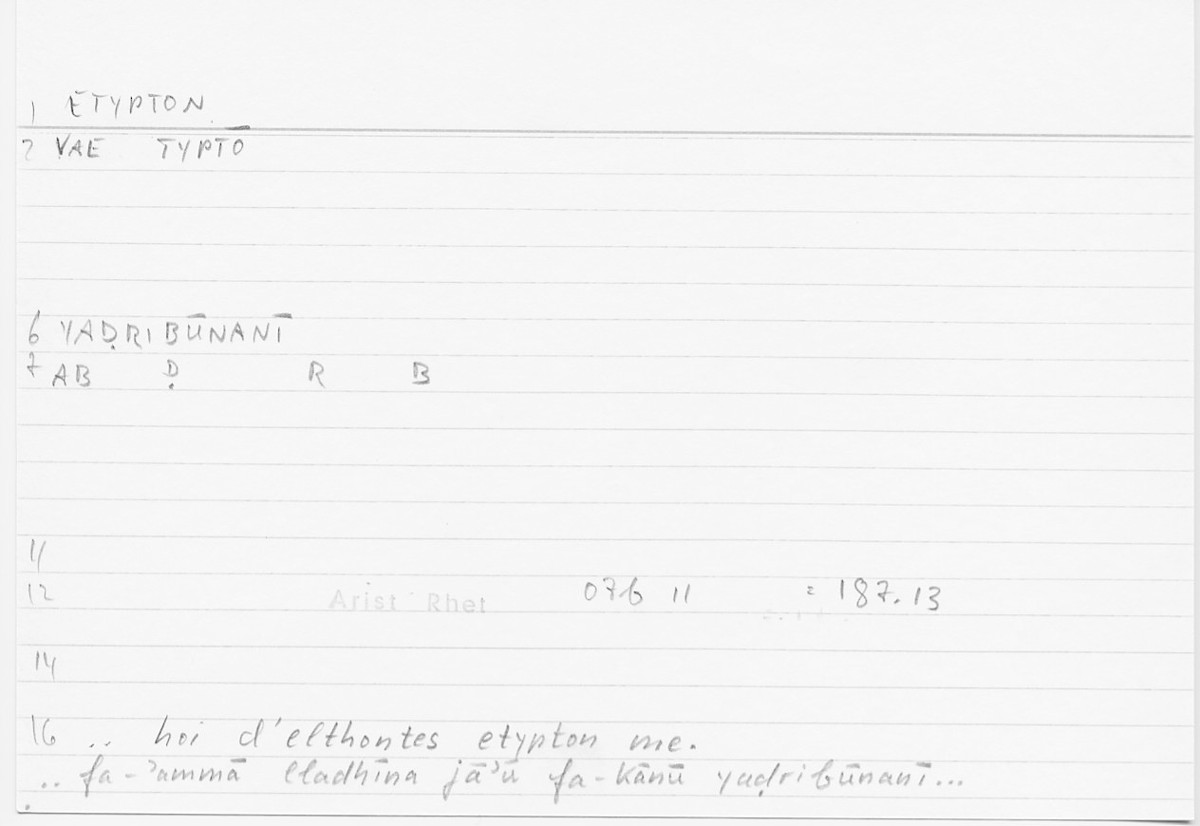 1 ETYPTON
2 VAE TYPTŌ
6 YAḌRIBŪNANĪ
7 AB Ḍ R B
11
12 Arist Rhet 07b 11 = 187.13
14
16 .. hoi d'elthontes etypton me.
.. fa-ʾammā lladhīna jāʾū fa-kānū yaḍribūnanī...